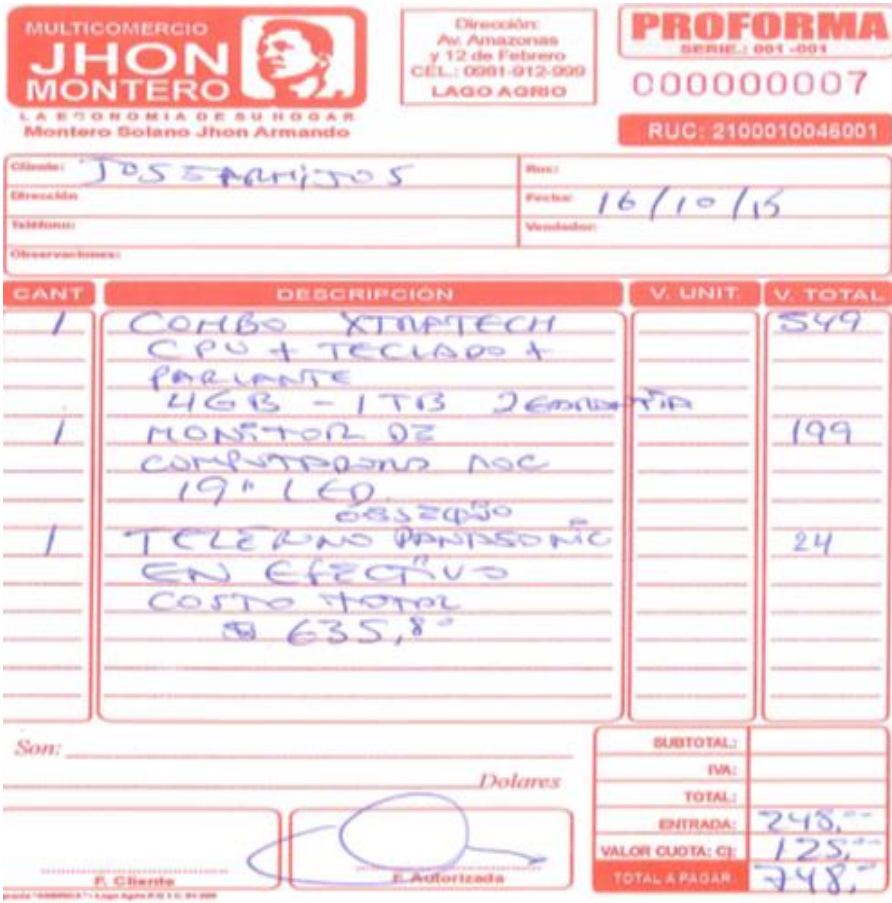 MULTICOMERCIO
JHON
MONTERO
LA ECONOMIA DE SU HOGAR
Montero Solano Jhon Armando
Dirección:
Av. Amazonas
y 12 de Febrero
CEL.: 0981-912-999
LAGO AGRIO
PROFORMA
SERIE.: 001 -001
000000007
RUC: 2100010046001
Cliente: JOSE ARMIJOS
Ruc:
Dirección
Fecha: 16/10/15
Teléfono:
Vendedor:
Observaciones:
CANT DESCRIPCIÓN V. UNIT. V. TOTAL
1 COMBO XTRATECH 549
CPU + TECLADO +
PARLANTE
4GB - 1TB
1 MONITOR DE 199
COMPUTADORA AOC
19" LED
OBSEQUIO
1 TELEFONO PANASONIC 24
EN EFECTIVO
COSTO TOTAL
$ 635,80
Son:
Dolares
SUBTOTAL:
IVA:
TOTAL:
ENTRADA: 248,00
VALOR CUOTA: C): 125,00
TOTAL A PAGAR 748,00
F. Cliente
F. Autorizada